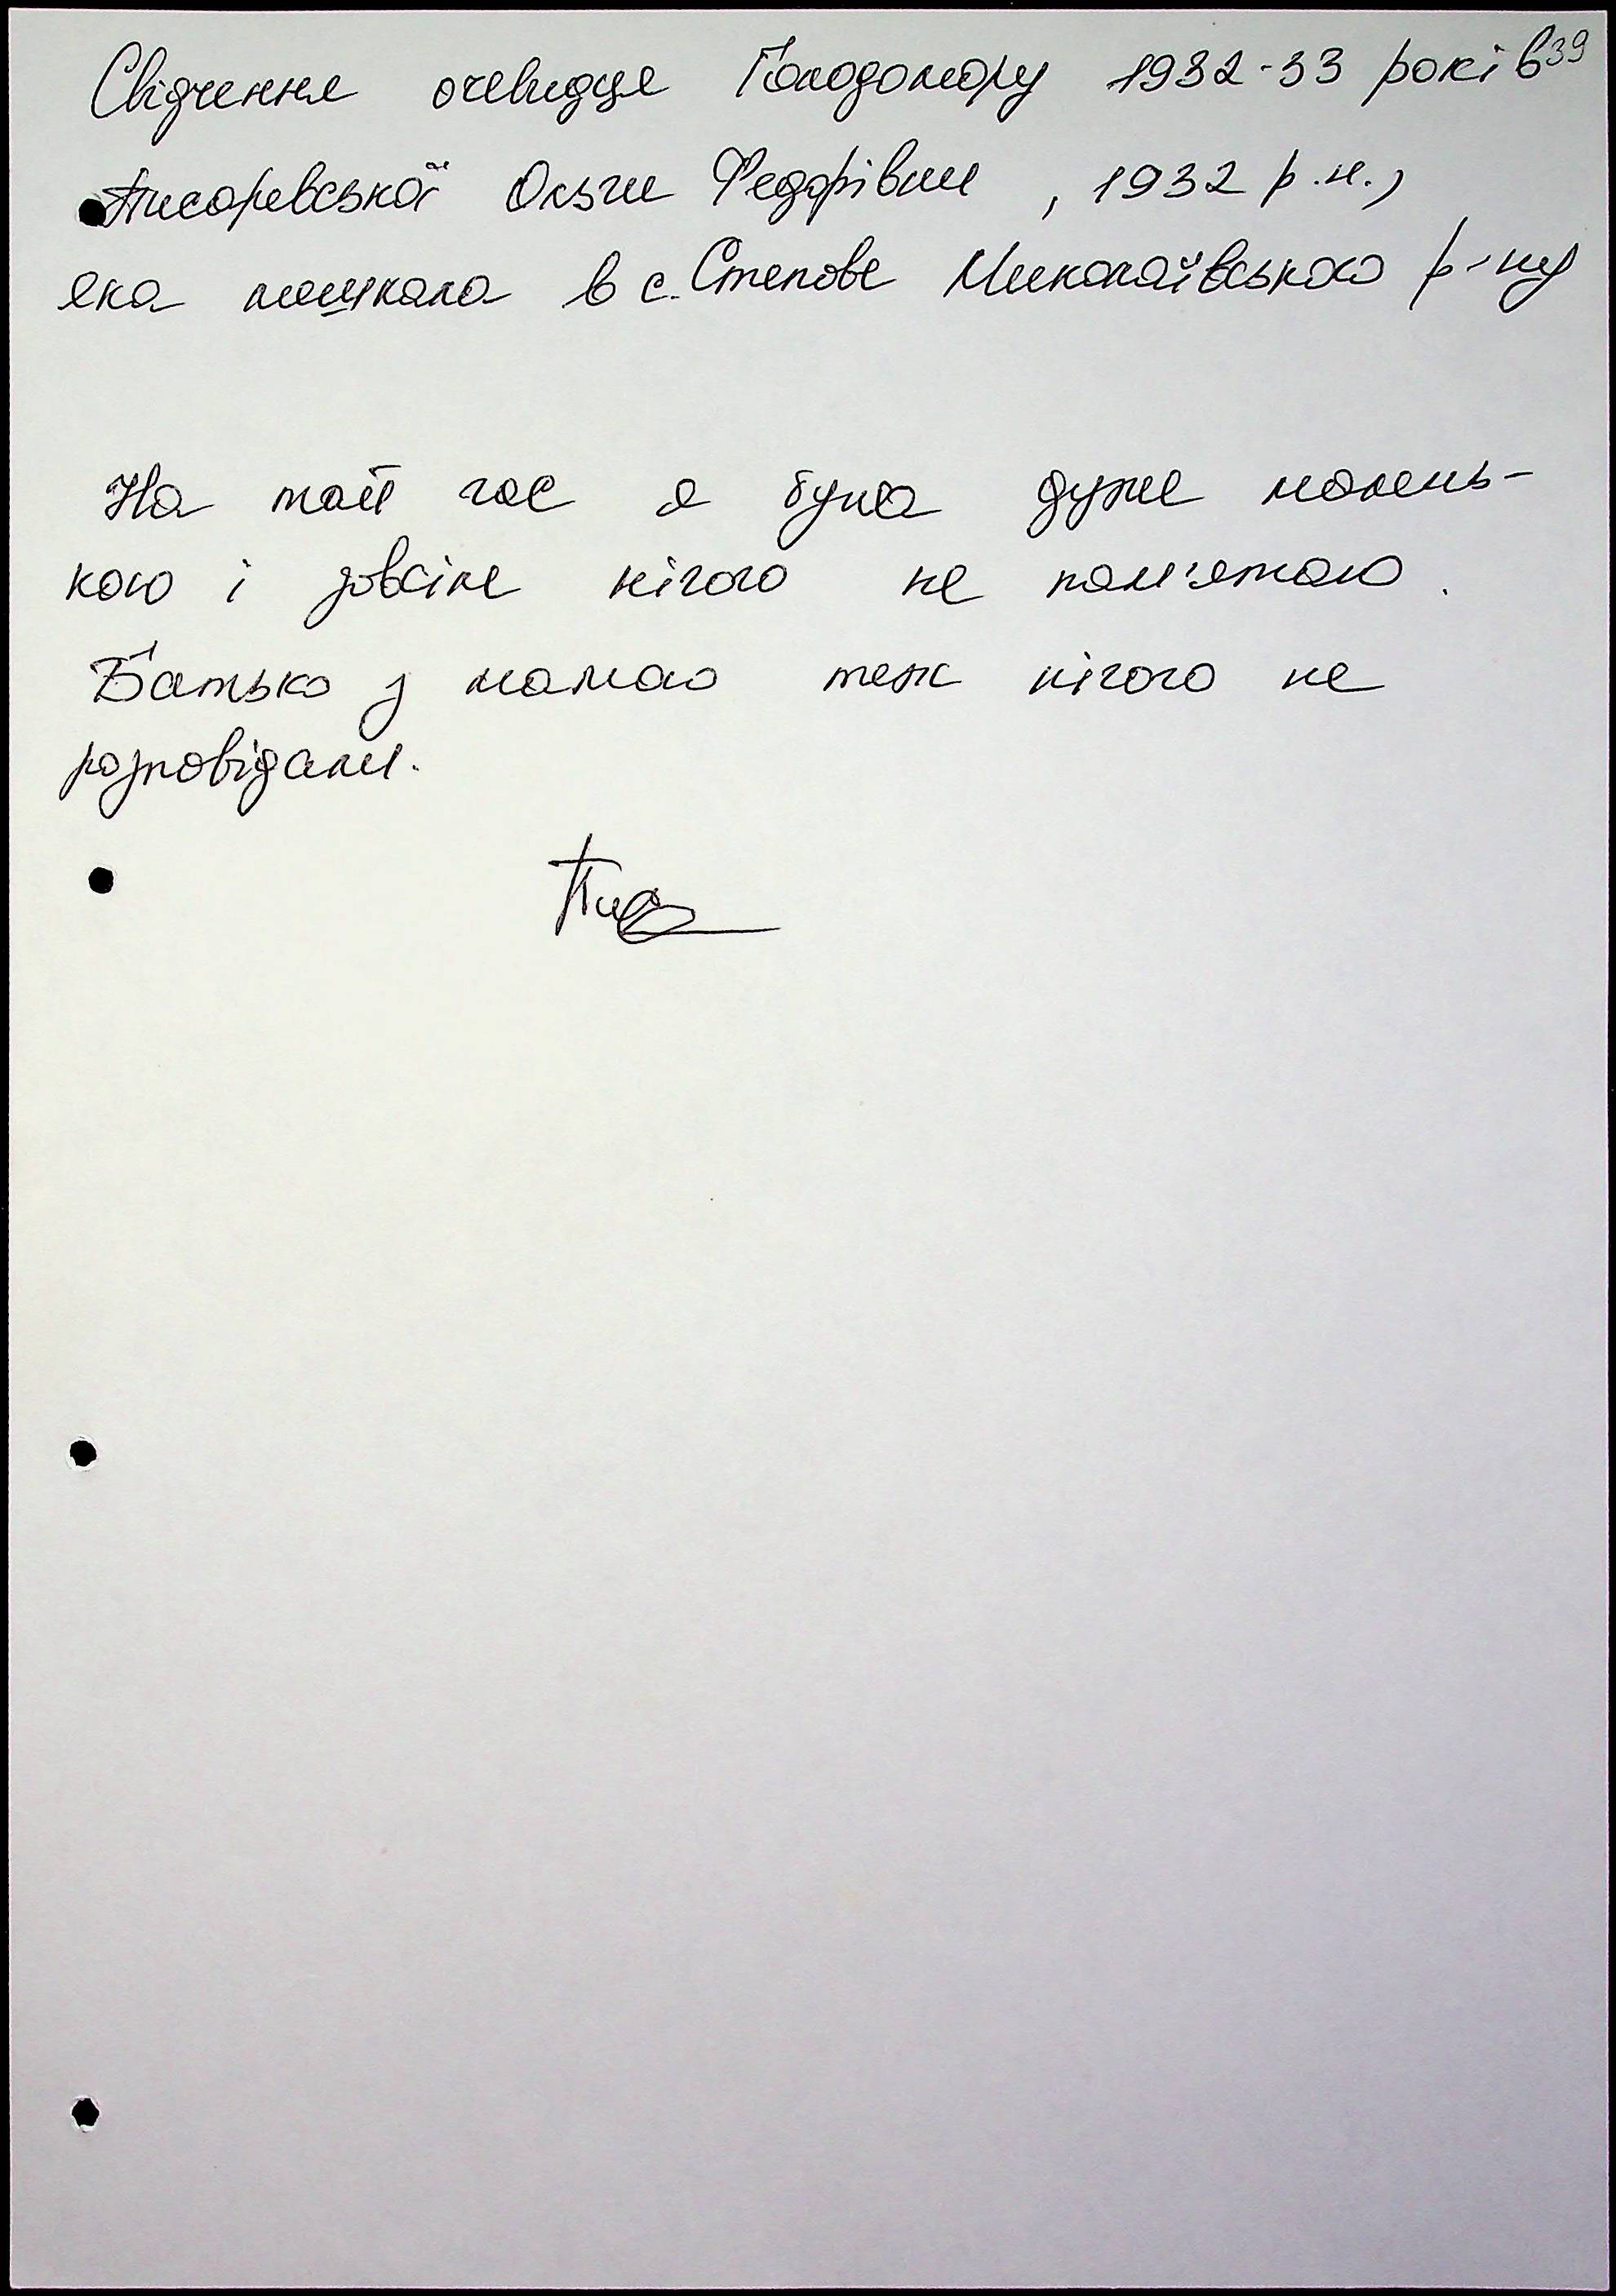 39
Свідчення очевидця Голодомору 1932-33 років
Писаревської Ольги Федорівни, 1932 р.н.,
яка мешкала в с. Степове Миколаївського р-ну
На той час я була дуже малень-
кою і зовсім нічого не пам'ятаю.
Батько з мамою теж нічого не
розповідали.